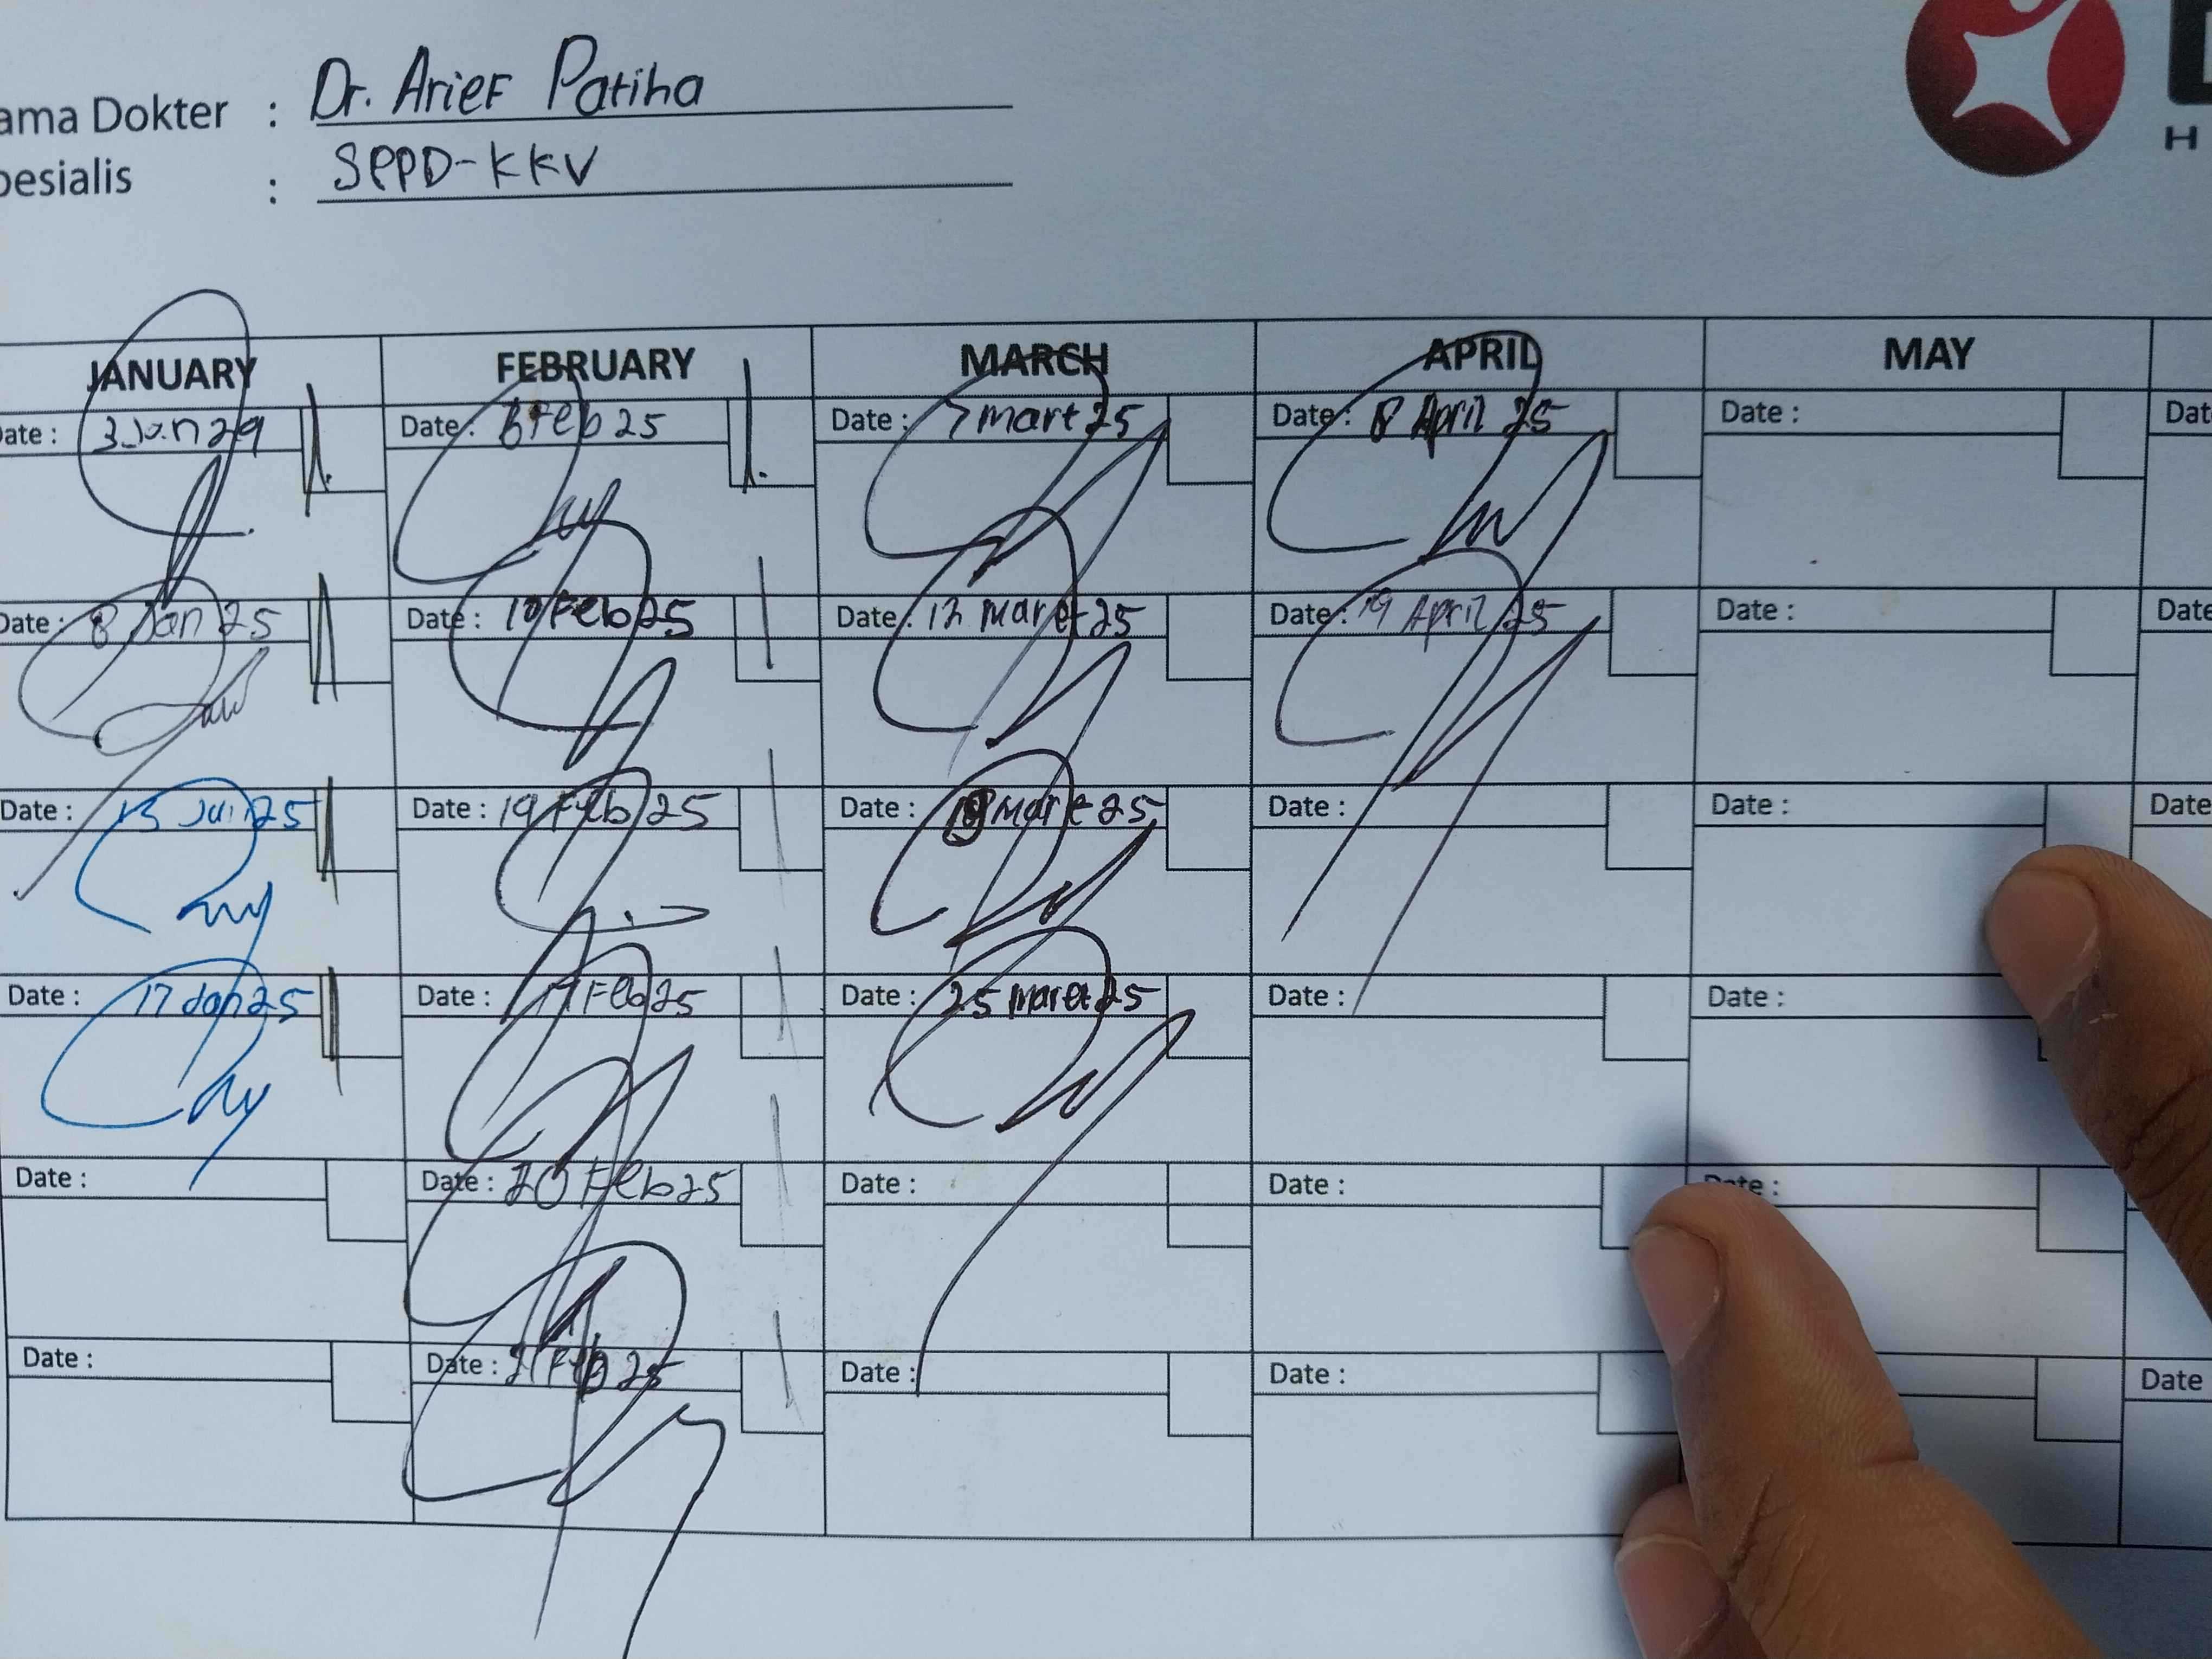 ama Dokter : Dr. Arief Patiha
pesialis : SPPD-KKV
H
JANUARY FEBRUARY MARCH APRIL MAY
ate : 3 Jan 29 Date : 6 Feb 25 Date : 7 mart 25 Date : 8 April 25 Date : Dat
Date : 8 Jan 25 Date : 10 Feb 25 Date : 12 maret 25 Date : 19 April 25 Date : Date
Date : 13 Jan 25 Date : 19 Feb 25 Date : 18 Maret 25 Date : Date : Date
Date : 17 Jan 25 Date : Feb 25 Date : 25 maret 25 Date : Date :
Date : Date : 20 Feb 25 Date : Date : Date :
Date : Date : 21 Feb 25 Date : Date : Date